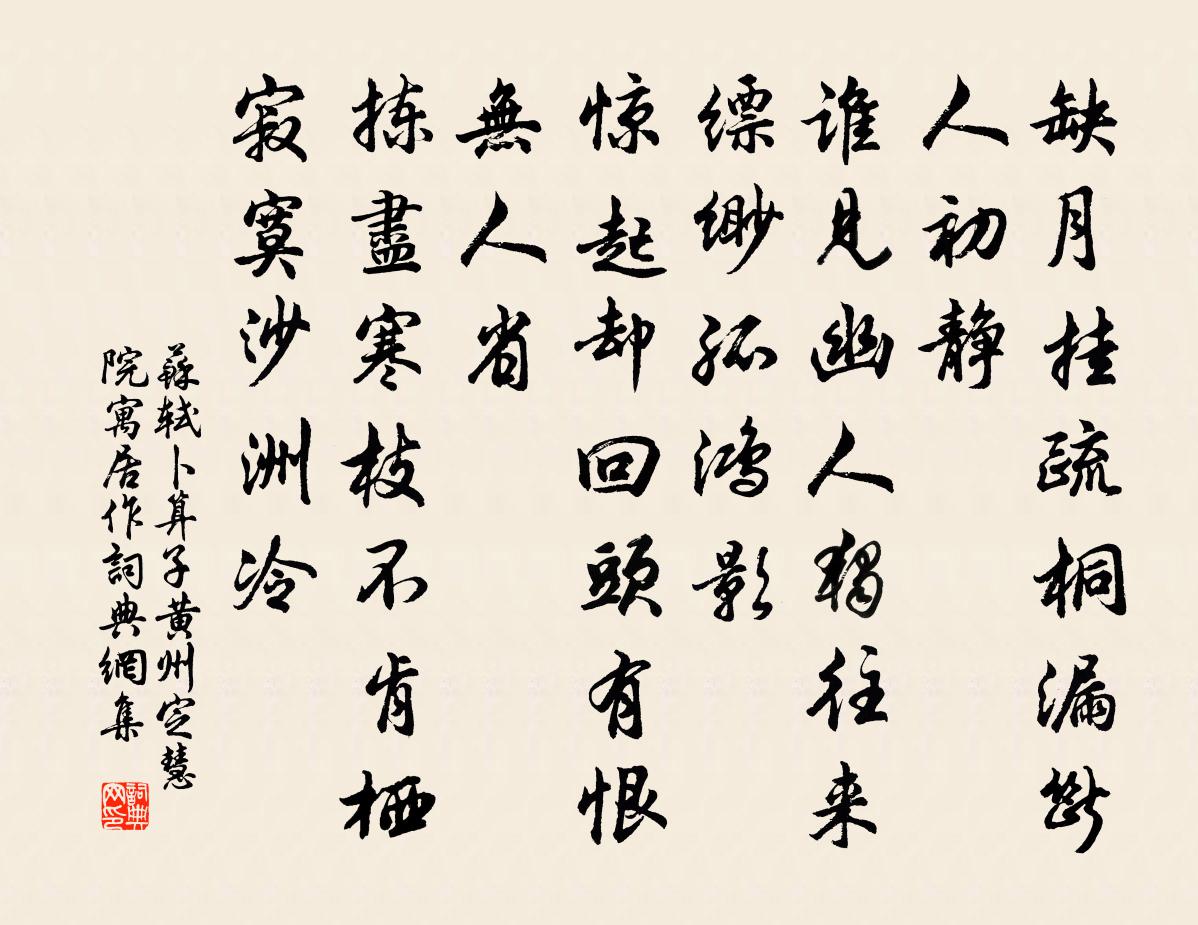 缺月挂疏桐漏断
人初静
谁见幽人独往来
缥缈孤鸿影
惊起却回頭有恨
無人省
拣盡寒枝不肯栖
寂寞沙洲冷
蘇轼卜算子黄州定慧
院寓居作詞典網集
詞典网印